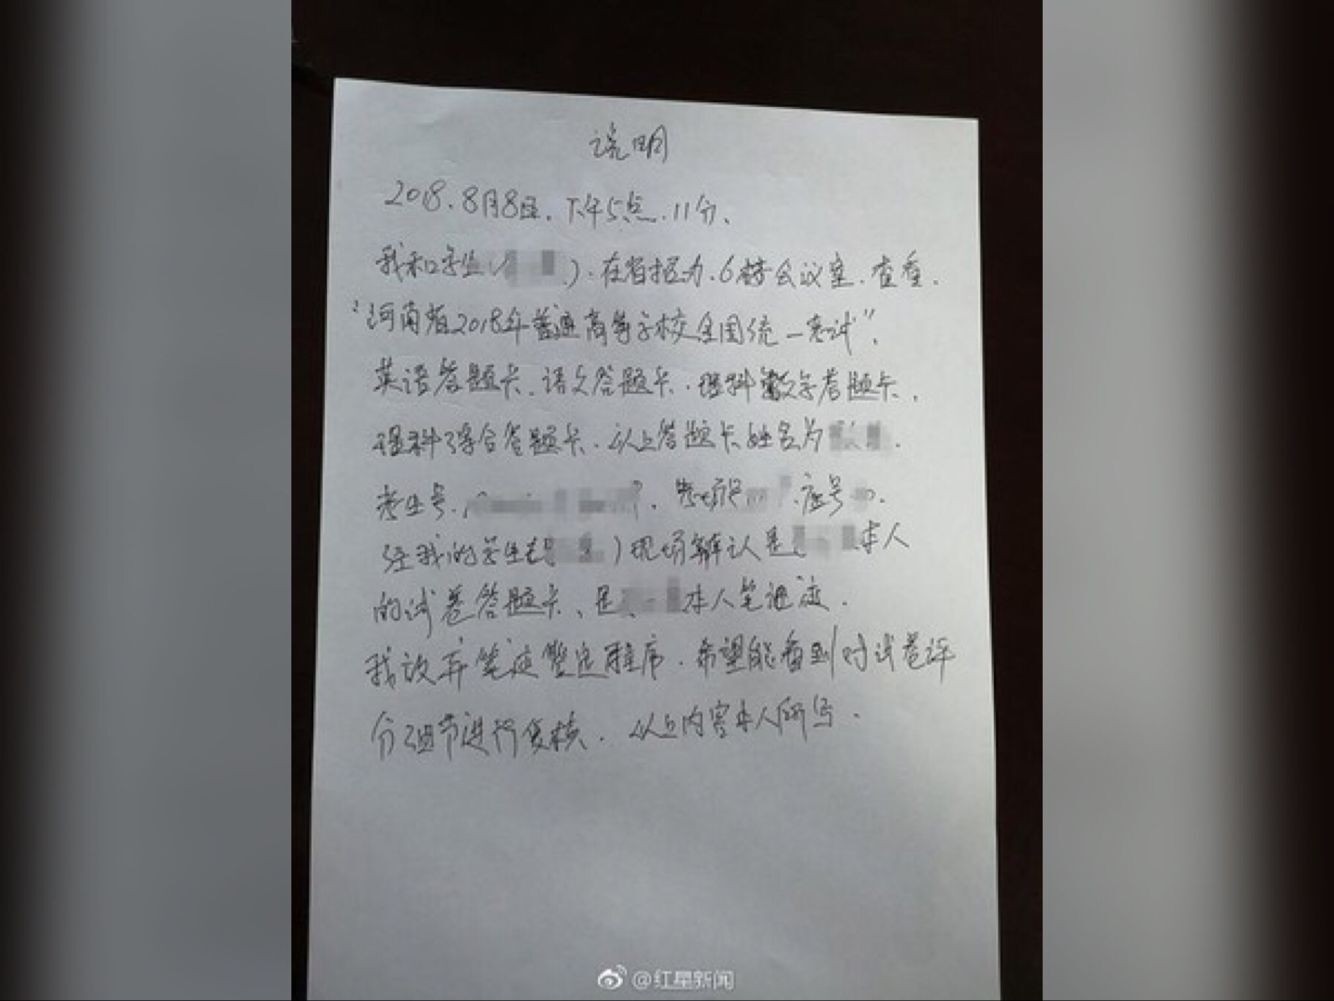 说明
2018.8月8日.下午5点.11分、
我和学生().在省招办.6楼会议室.查看.
"河南省2018年普通高等学校全国统一考试".
英语答题卡、语文答题卡.理科数学答题卡.
理科综合答题卡.以上答题卡姓名为.
考生号.考场号.座号.
经我的学生()现场辨认是本人
的试卷答题卡、是本人笔迹.
我放弃笔迹鉴定程序.希望能看到对试卷评
分细节进行复核.以上内容本人所写.
@红星新闻